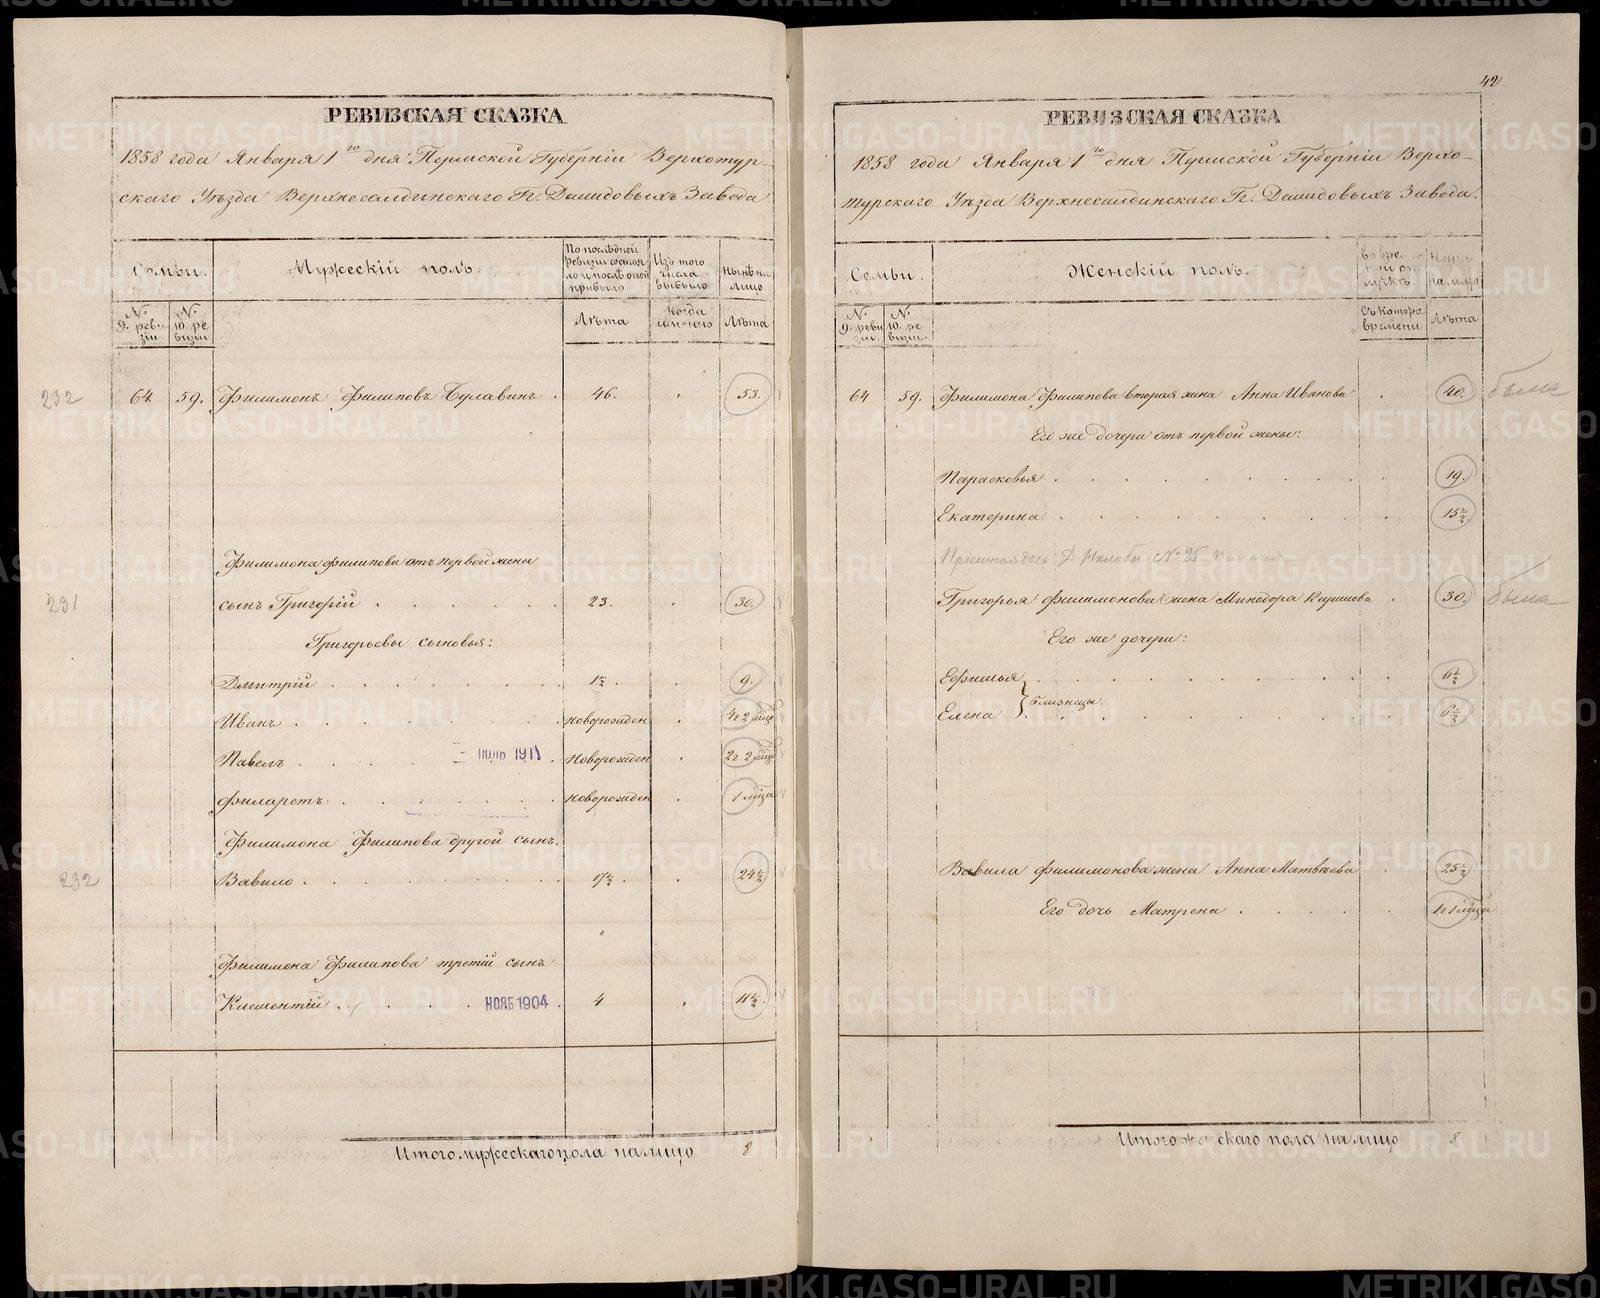 РЕВИЗСКАЯ СКАЗКА
1858 года Января 1го дня Пермской Губерніи Верхотур-
скаго Уѣзда Верхнесалдинскаго Гг. Демидовыхъ Завода
Семьи.
Мужескій полъ.
По послѣдней ревизіи состояло и послѣ оной прибыло
Изъ того числа выбыло
Нынѣ на лицо
№ 9. ревизіи
№ 10. ревизіи
Лѣта
Когда именно
Лѣта
232 64 59. Филимонъ Филиповъ Булавинъ . 46. 53.
Филимона Филипова отъ первой жены
231 сынъ Григорій 23. 30.
Григорьевы сыновья:
Дмитрій 1½. 9.
Иванъ новорожден 4г 2 мца
Павелъ ІЮЛЬ 1911 новорожден 2г 2 мца
Филаретъ новорожден 1 мца
Филимона Филипова другой сынъ.
232 Вавило 17½. 24½
Филимона Филипова третій сынъ
Клементій НОЯБ 1904 4 11½.
Итого мужескаго пола на лицо 8
42
РЕВИЗСКАЯ СКАЗКА
1858 года Января 1го дня Пермской Губерніи Верхо-
турскаго Уѣзда Верхнесалдинскаго Гг. Демидовыхъ Завода.
Семьи.
Женскій полъ.
во вре
на лицо
№ 9. ревизіи.
№ 10. ревизіи.
Съ котора времени
Лѣта
64 59. Филимона Филипова вторая жена Анна Иванова 40.
Его же дочери отъ первой жены:
Парасковья 19.
Екатерина 15½
№ 25
Григорья Филимонова жена Минодора 30. была
Его же дочери:
Ефимья 6½
близнецы.
Елена 6½
Вавила Филимонова жена Анна Матвѣева 25½
Его дочь Матрена 1г 1 мца
Итого женскаго пола на лицо 8
METRIKI.GASO-URAL.RU